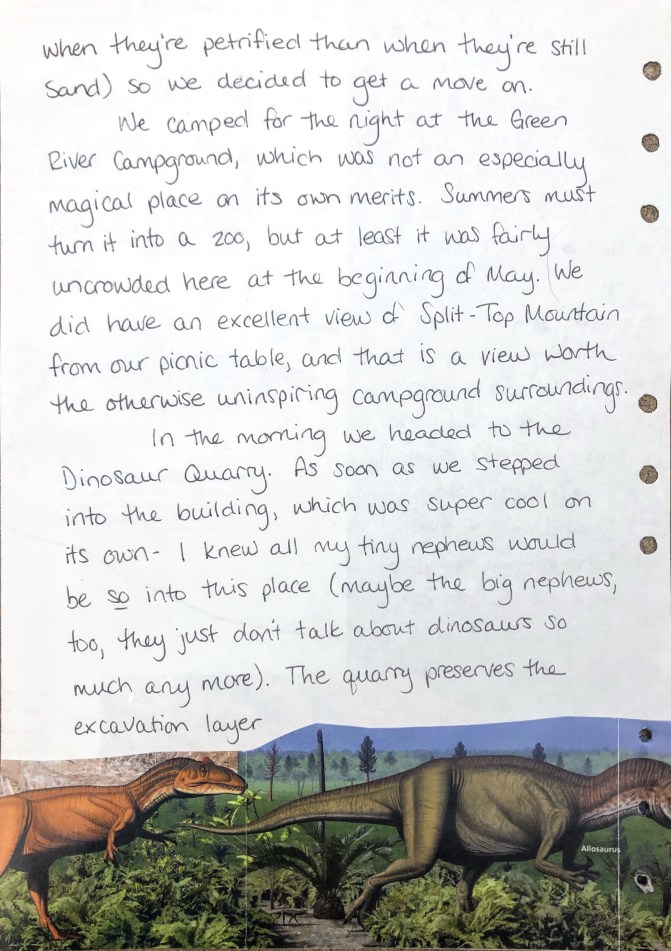 when they're petrified than when they're still
sand) so we decided to get a move on.
We camped for the night at the Green
River Campground, which was not an especially
magical place on its own merits. Summers must
turn it into a zoo, but at least it was fairly
uncrowded here at the beginning of May. We
did have an excellent view of Split-Top Mountain
from our picnic table, and that is a view worth
the otherwise uninspiring campground surroundings.
In the morning we headed to the
Dinosaur Quarry. As soon as we stepped
into the building, which was super cool on
its own- I knew all my tiny nephews would
be so into this place (maybe the big nephews,
too, they just don't talk about dinosaurs so
much any more). The quarry preserves the
excavation layer
Allosaurus